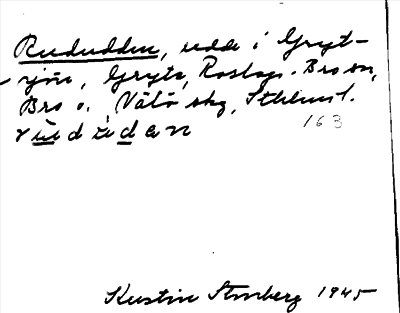 Rududden, udde i Gryt-
sjön, Gryta, Roslags-Bro sn,
Bro o. Vätö skg, Sthlms l.
rùdùdan
163
Kerstin Stenberg 1945